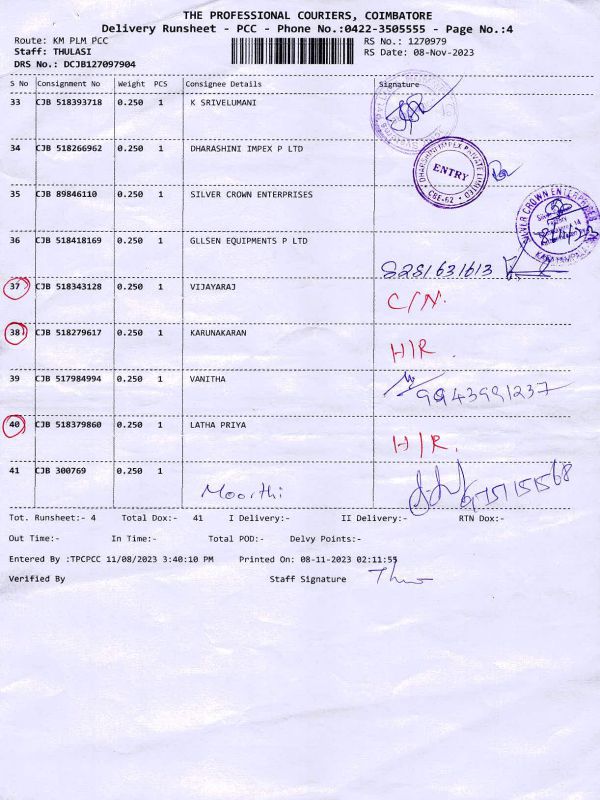 THE PROFESSIONAL COURIERS, COIMBATORE
Delivery Runsheet - PCC - Phone No.:0422-3505555 - Page No.:4
Route: KM PLM PCC RS No.: 1270979
Staff: THULASI RS Date: 08-Nov-2023
DRS No.: DCJB127097904
S No Consignment No Weight PCS Consignee Details Signature
33 CJB 518393718 0.250 1 K SRIVELUMANI
34 CJB 518266962 0.250 1 DHARASHINI IMPEX P LTD
DHARSHINI IMPEX PRIVATE LIMITED
ENTRY
CBE-62
35 CJB 89846110 0.250 1 SILVER CROWN ENTERPRISES
SILVER CROWN ENTERPRISES
36 CJB 518418169 0.250 1 GLLSEN EQUIPMENTS P LTD
8281631613
37 CJB 518343128 0.250 1 VIJAYARAJ C/N.
38 CJB 518279617 0.250 1 KARUNAKARAN H/R.
39 CJB 517984994 0.250 1 VANITHA 9943991237
40 CJB 518379860 0.250 1 LATHA PRIYA H/R.
41 CJB 300769 0.250 1 Moorthi
Tot. Runsheet:- 4 Total Dox:- 41 I Delivery:- II Delivery:- RTN Dox:-
Out Time:- In Time:- Total POD:- Delvy Points:-
Entered By :TPCPCC 11/08/2023 3:40:10 PM Printed On: 08-11-2023 02:11:55
Verified By Staff Signature